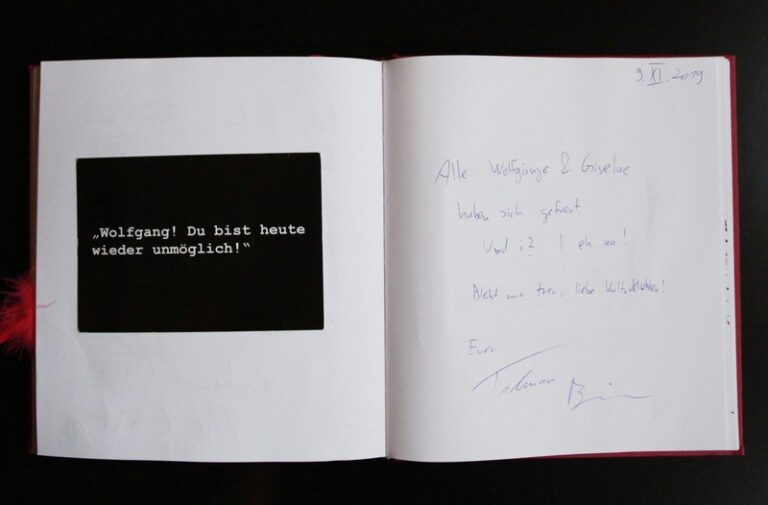 „Wolfgang! Du bist heute
wieder unmöglich!“
9. XI. 2019
Alle Wolfgänge & Giselae
haben sich gefreut.
Und i? I eh aa!
Bleibt uns treu, liebe
Eure